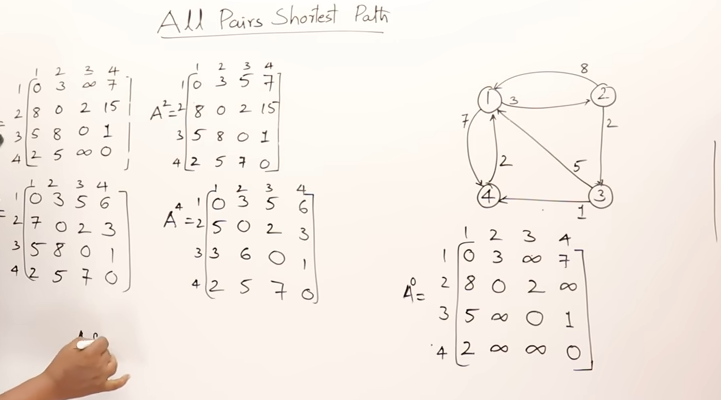 All Pairs Shortest Path
1 2 3 4
1 0 3 ∞ 7
2 8 0 2 15
3 5 8 0 1
4 2 5 ∞ 0
1 2 3 4
1 0 3 5 7
A² = 2 8 0 2 15
3 5 8 0 1
4 2 5 7 0
1 2 3 4
= 1 0 3 5 6
2 7 0 2 3
3 5 8 0 1
4 2 5 7 0
1 2 3 4
1 0 3 5 6
A⁴ = 2 5 0 2 3
3 3 6 0 1
4 2 5 7 0
8
1 3 2
7 2 2
5
4 1 3
1 2 3 4
1 0 3 ∞ 7
A⁰ = 2 8 0 2 ∞
3 5 ∞ 0 1
4 2 ∞ ∞ 0